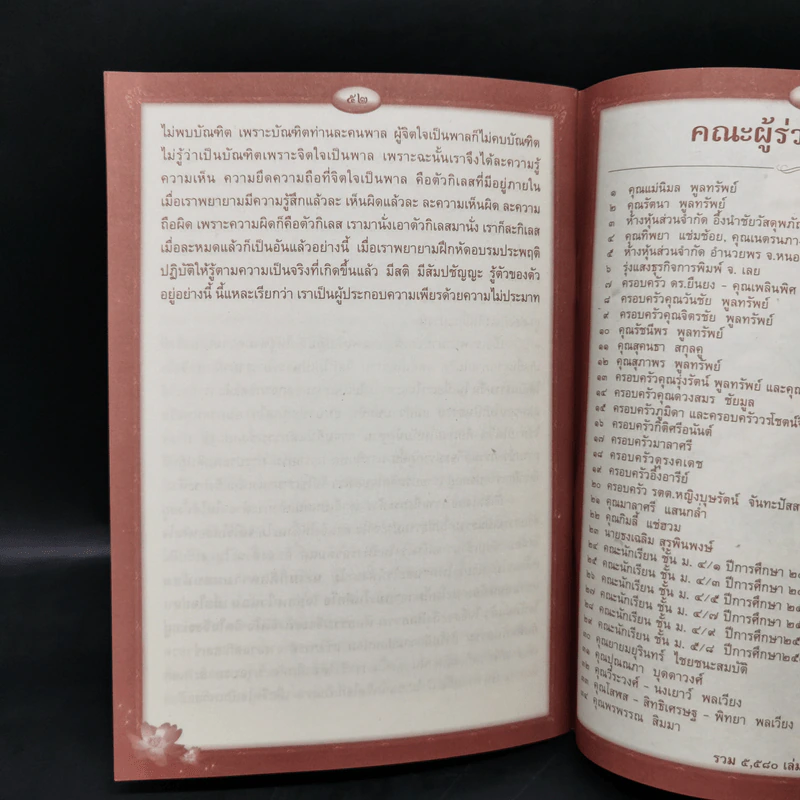 ๕๒
ไม่พบบัณฑิต เพราะบัณฑิตท่านละคนพาล ผู้จิตใจเป็นพาลก็ไม่คบบัณฑิต
ไม่รู้ว่าเป็นบัณฑิตเพราะจิตใจเป็นพาล เพราะฉะนั้นเราจึงได้ละความรู้
ความเห็น ความยึดความถือที่จิตใจเป็นพาล คือตัวกิเลสที่มีอยู่ภายใน
เมื่อเราพยายามมีความรู้สึกแล้วละ เห็นผิดแล้วละ ละความเห็นผิด ละความ
ถือผิด เพราะความผิดก็คือตัวกิเลส เรามานั่งเอาตัวกิเลสมานั่ง เราก็ละกิเลส
เมื่อละหมดแล้วก็เป็นอันแล้วอย่างนี้ เมื่อเราพยายามฝึกหัดอบรมประพฤติ
ปฏิบัติให้รู้ตามความเป็นจริงที่เกิดขึ้นแล้ว มีสติ มีสัมปชัญญะ รู้ตัวของตัว
อยู่อย่างนี้ นี้แหละเรียกว่า เราเป็นผู้ประกอบความเพียรด้วยความไม่ประมาท
คณะผู้ร่ว
๑ คุณแม่นิมล พูลทรัพย์
๒ คุณรัตนา พูลทรัพย์
๓ ห้างหุ้นส่วนจำกัด อึ้งนำชัยวัสดุพภัณ
๔ คุณทิพยา แช่มช้อย, คุณเนตรนภา
๕ ห้างหุ้นส่วนจำกัด อำนวยพร จ.หนอ
๖ รุ่งแสงธุรกิจการพิมพ์ จ. เลย
๗ ครอบครัว ดร.ยืนยง - คุณเพลินพิศ
๘ ครอบครัวคุณวันชัย พูลทรัพย์
๙ ครอบครัวคุณจิตรชัย พูลทรัพย์
๑๐ คุณรัชนีพร พูลทรัพย์
๑๑ คุณสุคนธา สกุลคู
๑๒ คุณสุภาพร พูลทรัพย์
๑๓ ครอบครัวคุณรุ่งรัตน์ พูลทรัพย์ และคุณ
๑๔ ครอบครัวคุณดวงสมร ชัยมูล
๑๕ ครอบครัวภูมิดา และครอบครัววรโชตน์
๑๖ ครอบครัวกิติศรีอนันต์
๑๗ ครอบครัวมาลาศรี
๑๘ ครอบครัวดุรงคเดช
๑๙ ครอบครัวอึ้งอารีย์
๒๐ ครอบครัว รตต.หญิงบุษรัตน์ จันทะปัสส
๒๑ คุณมาลาศรี แสนกล้า
๒๒ คุณกิมลี้ แซ่ฮวม
๒๓ นายธงเฉลิม สุรพินพงษ์
๒๔ คณะนักเรียน ชั้น ม. ๔/๑ ปีการศึกษา ๒๕
๒๕ คณะนักเรียน ชั้น ม. ๔/๓ ปีการศึกษา ๒๕
๒๖ คณะนักเรียน ชั้น ม. ๔/๕ ปีการศึกษา ๒๕
๒๗ คณะนักเรียน ชั้น ม. ๔/๗ ปีการศึกษา ๒๕
๒๘ คณะนักเรียน ชั้น ม. ๔/๙ ปีการศึกษา๒๕
๒๙ คณะนักเรียน ชั้น ม. ๕/๘ ปีการศึกษา๒๕
๓๐ คุณยายมยุรินทร์ ไชยชนะสมบัติ
๓๑ คุณปุณณภา บุดดาวงศ์
๓๒ คุณวีระวงศ์ - นงเยาว์ พลเวียง
๓๓ คุณโสพส - สิทธิเศรษฐ - พิทยา พลเวียง
๓๔ คุณพรพรรณ สิมมา
รวม ๕,๕๘๐ เล่ม